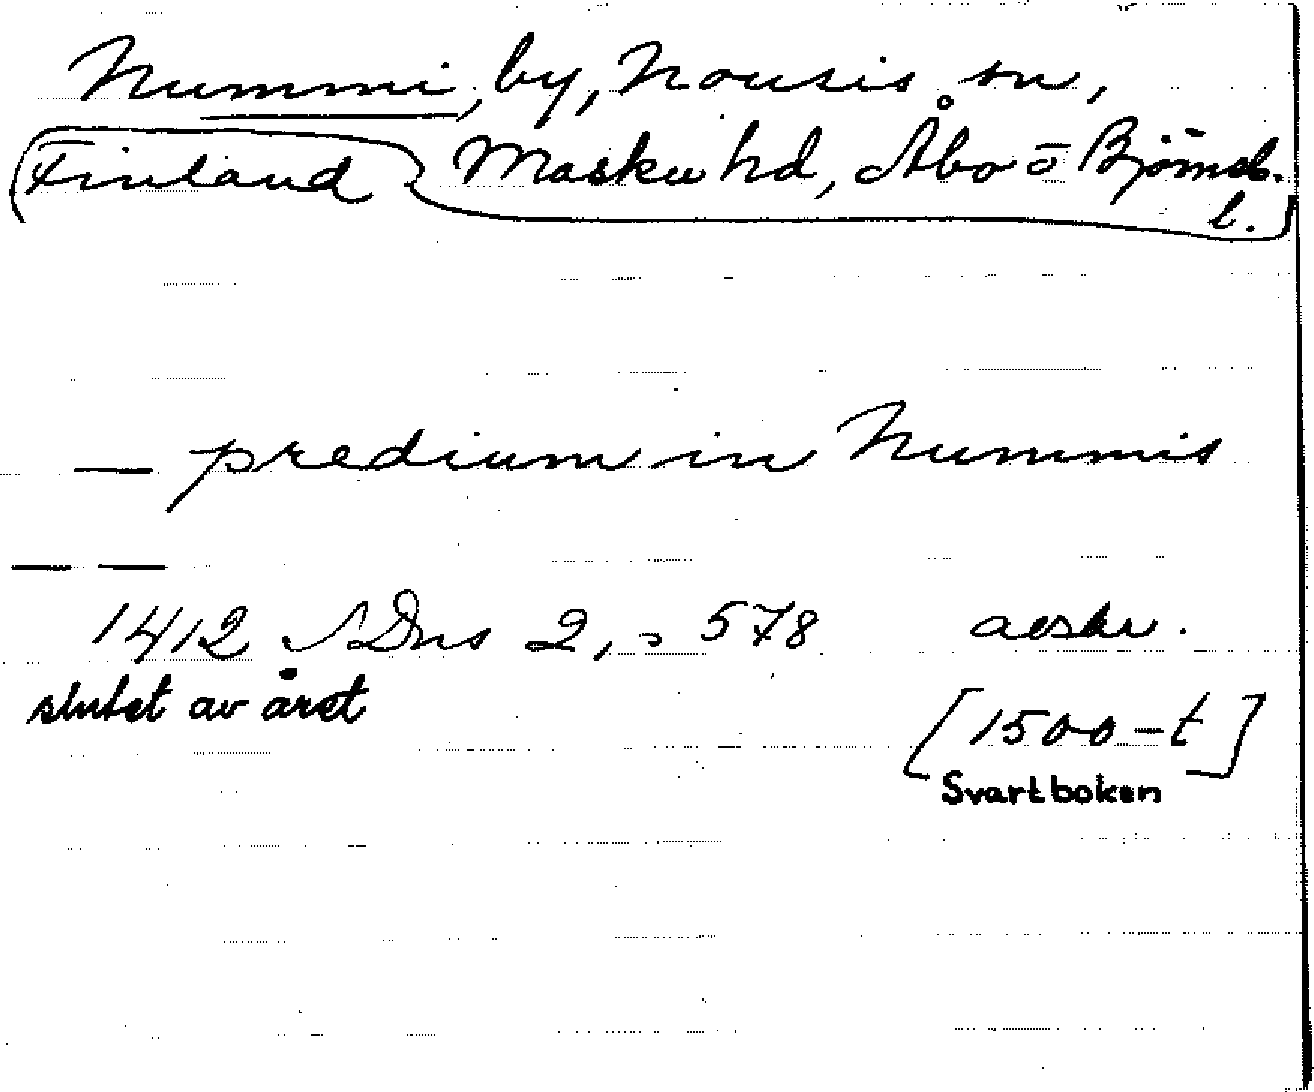 Nummi, by, Nousis sn,
Finland Masku hd, Åbo o Björneb.
l.
— predium in Nummis
— —
1412 SDns 2, s 578 avskr.
slutet av året [1500-t]
Svartboken